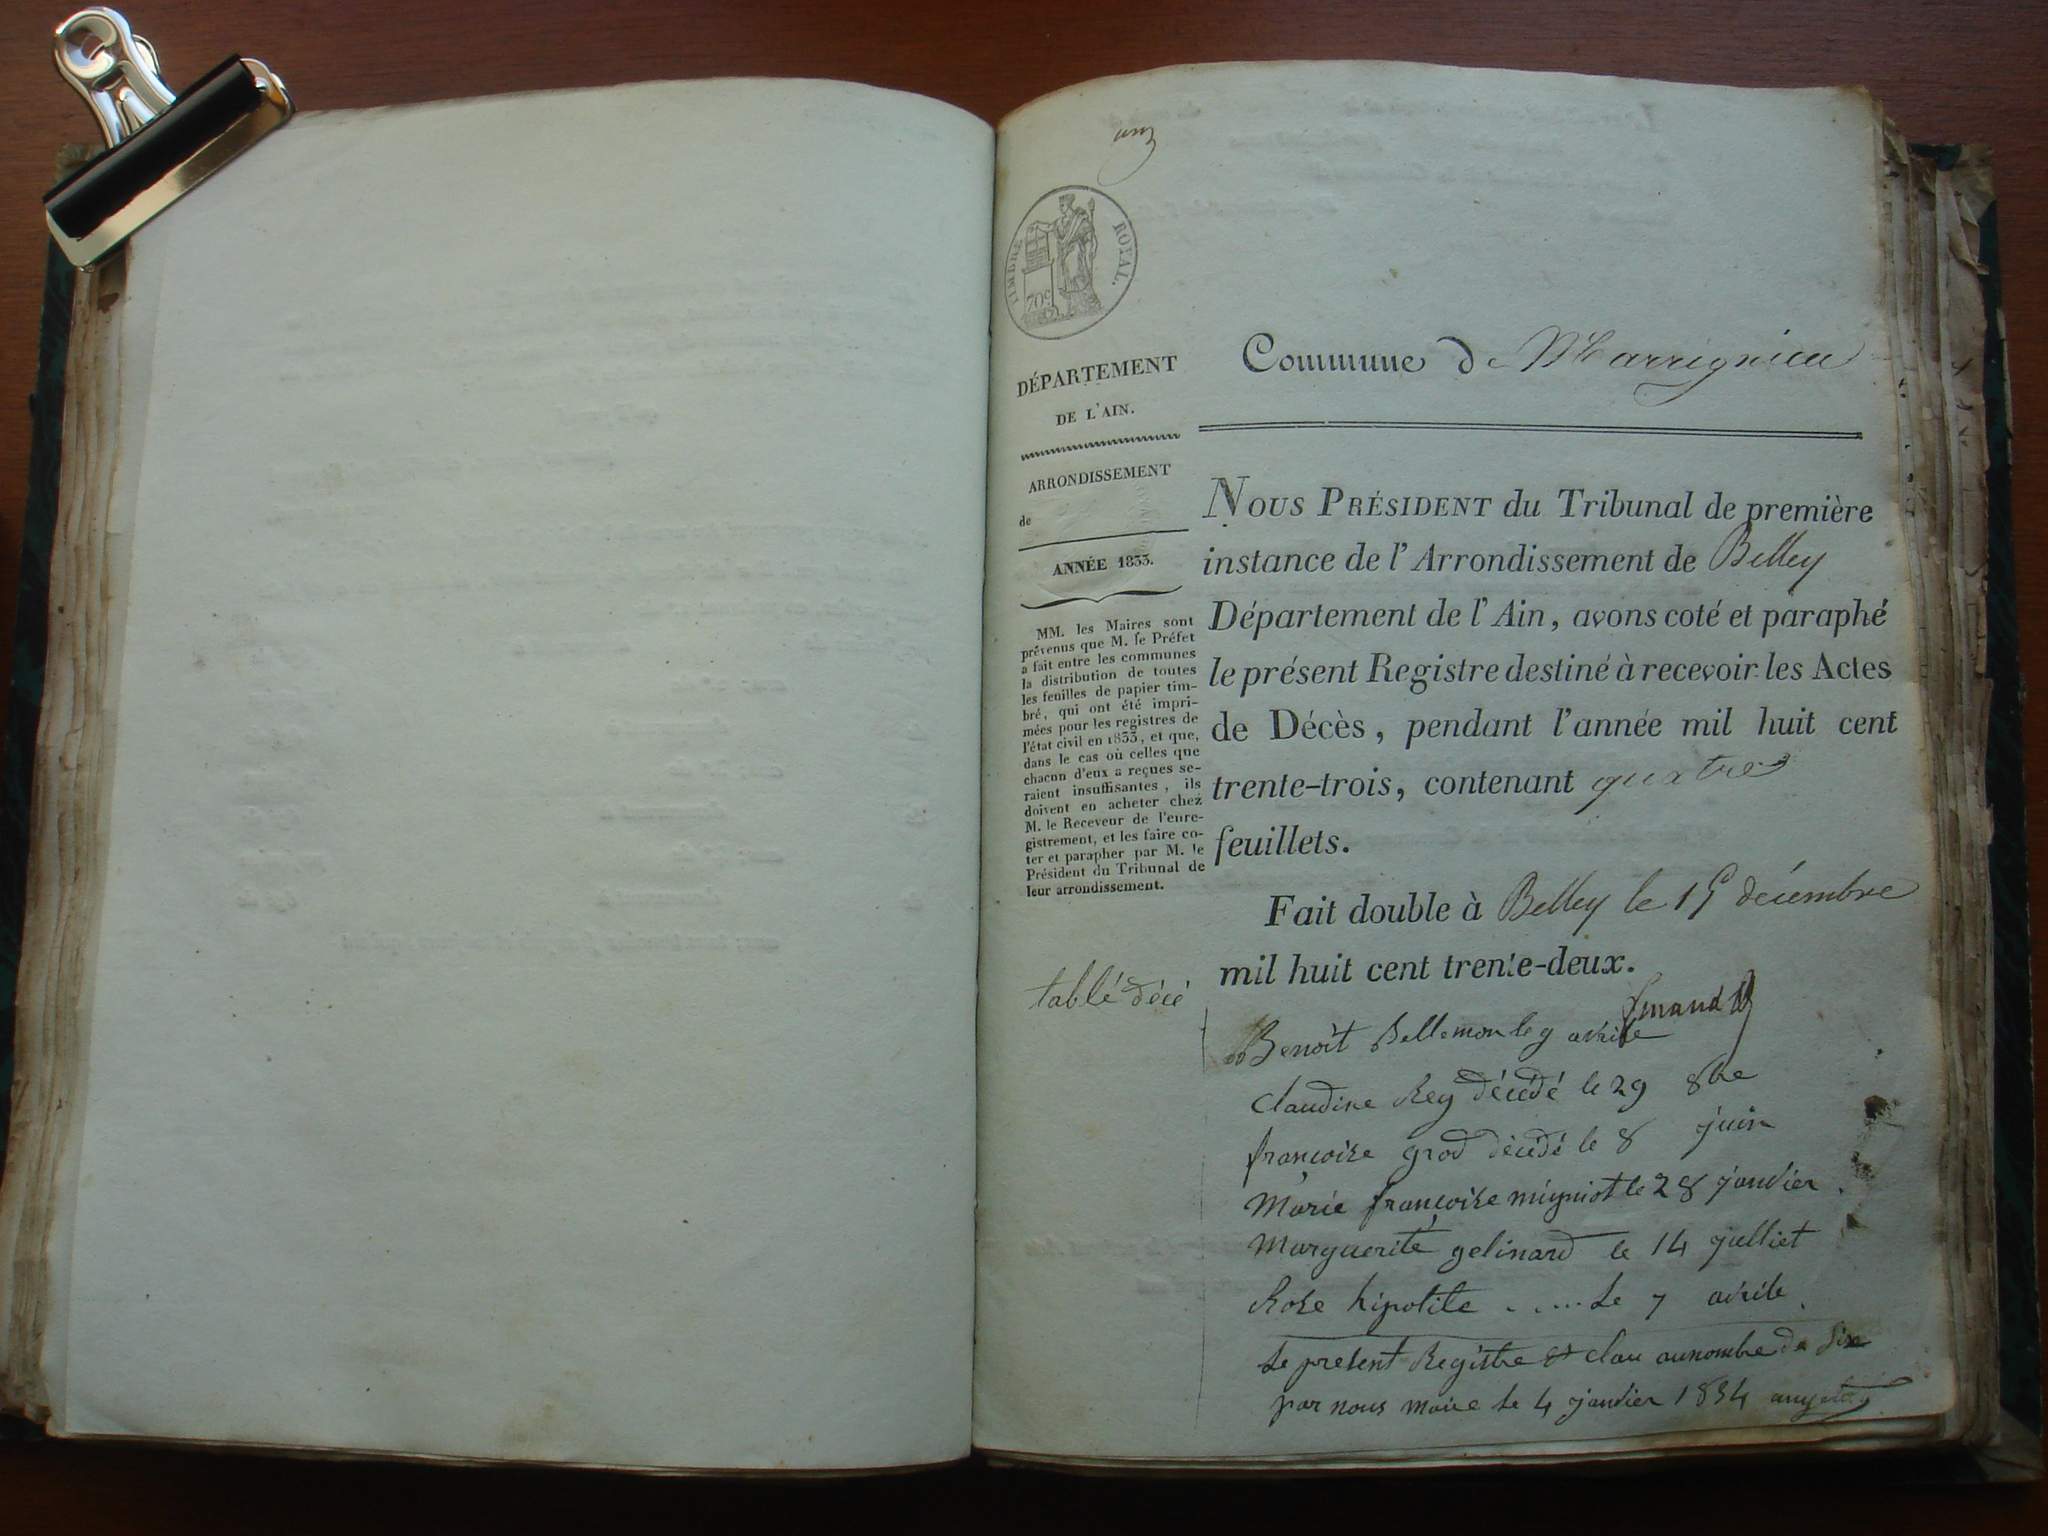 TIMBRE ROYAL.
70c
DÉPARTEMENT
DE L'AIN.
ARRONDISSEMENT
de
ANNÉE 1833.
MM. les Maires sont
prévenus que M. le Préfet
a fait entre les communes
la distribution de toutes
les feuilles de papier tim-
bré, qui ont été impri-
mées pour les registres de
l'état civil en 1833, et que,
dans le cas où celles que
chacun d'eux a reçues se-
raient insuffisantes, ils
doivent en acheter chez
M. le Receveur de l'enre-
gistrement, et les faire co-
ter et parapher par M. le
Président du Tribunal de
leur arrondissement.
tablé décé
Commune de Marrignieu
NOUS PRÉSIDENT du Tribunal de première
instance de l'Arrondissement de Belley
Département de l'Ain, avons coté et paraphé
le présent Registre destiné à recevoir les Actes
de Décès, pendant l'année mil huit cent
trente-trois, contenant quatre
feuillets.
Fait double à Belley le décembre
mil huit cent trente-deux.
Benoit Bellemon le 9 avrile
Claudine Rey décédé le 29 8bre
francoise grod décédé le 8 juin
Marie francoise migniot le 28 janvier
Marguerite gelinard le 14 julliet
Rose hipolite ..... Le 7 avrile
Le present Registre et clau aunombre de six
par nous maire le 4 janvier 1834